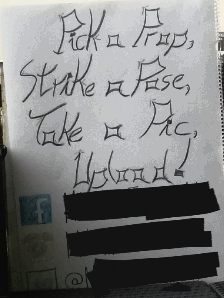 Pick a Prop,
Strike a Pose,
Take a Pic,
Upload!
f
@